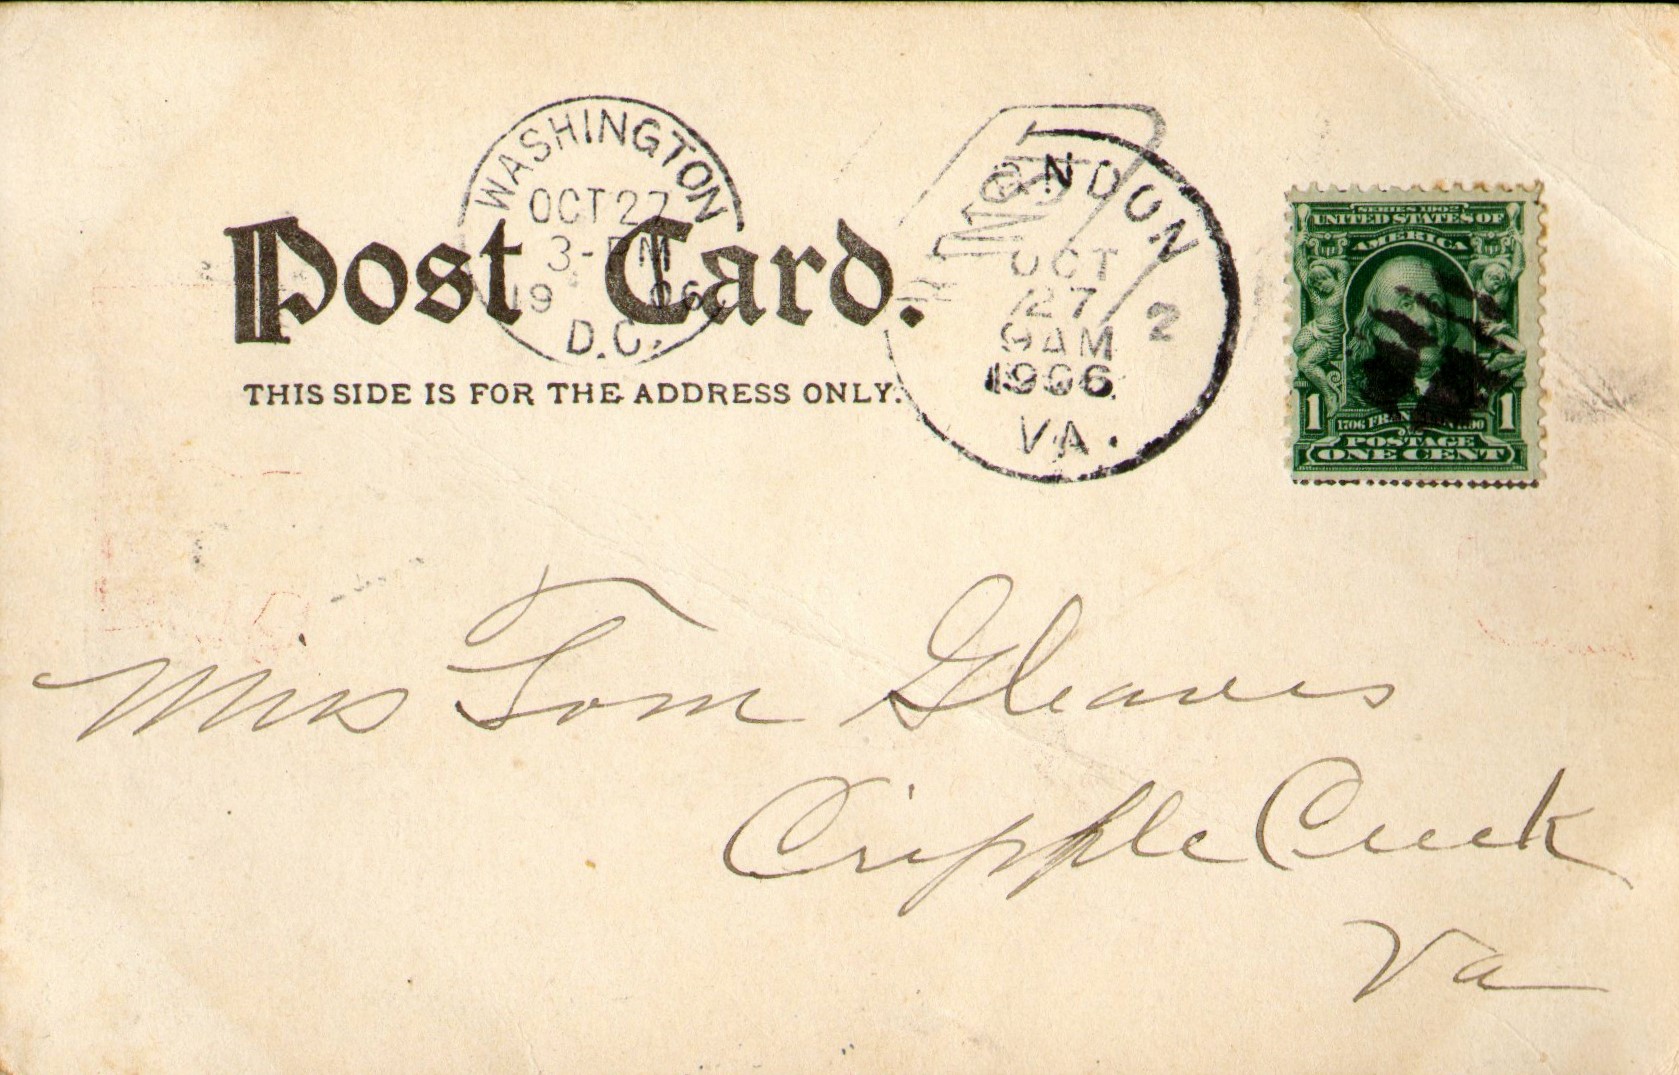 WASHINGTON
OCT 27
3-PM
19 06
D.C.
Post Card.
THIS SIDE IS FOR THE ADDRESS ONLY.
OCT
27
9AM
1906
VA.
2
SERIES 1902
UNITED STATES OF
AMERICA
1 1
POSTAGE
ONE CENT
Miss Tom Gleaves
Cripple Creek
Va